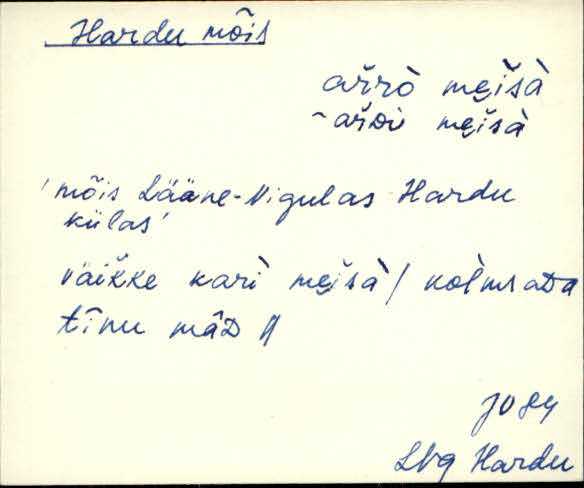 Hardu mõis
ař̀rò mei̯šà
~ ařᴅù mei̯šà
'mõis Lääne-Nigulas Hardu
külas'
väikke karì mei̯sà / kolmsaᴅa
tīnu māᴅ //
JO 84
LNg Hardu